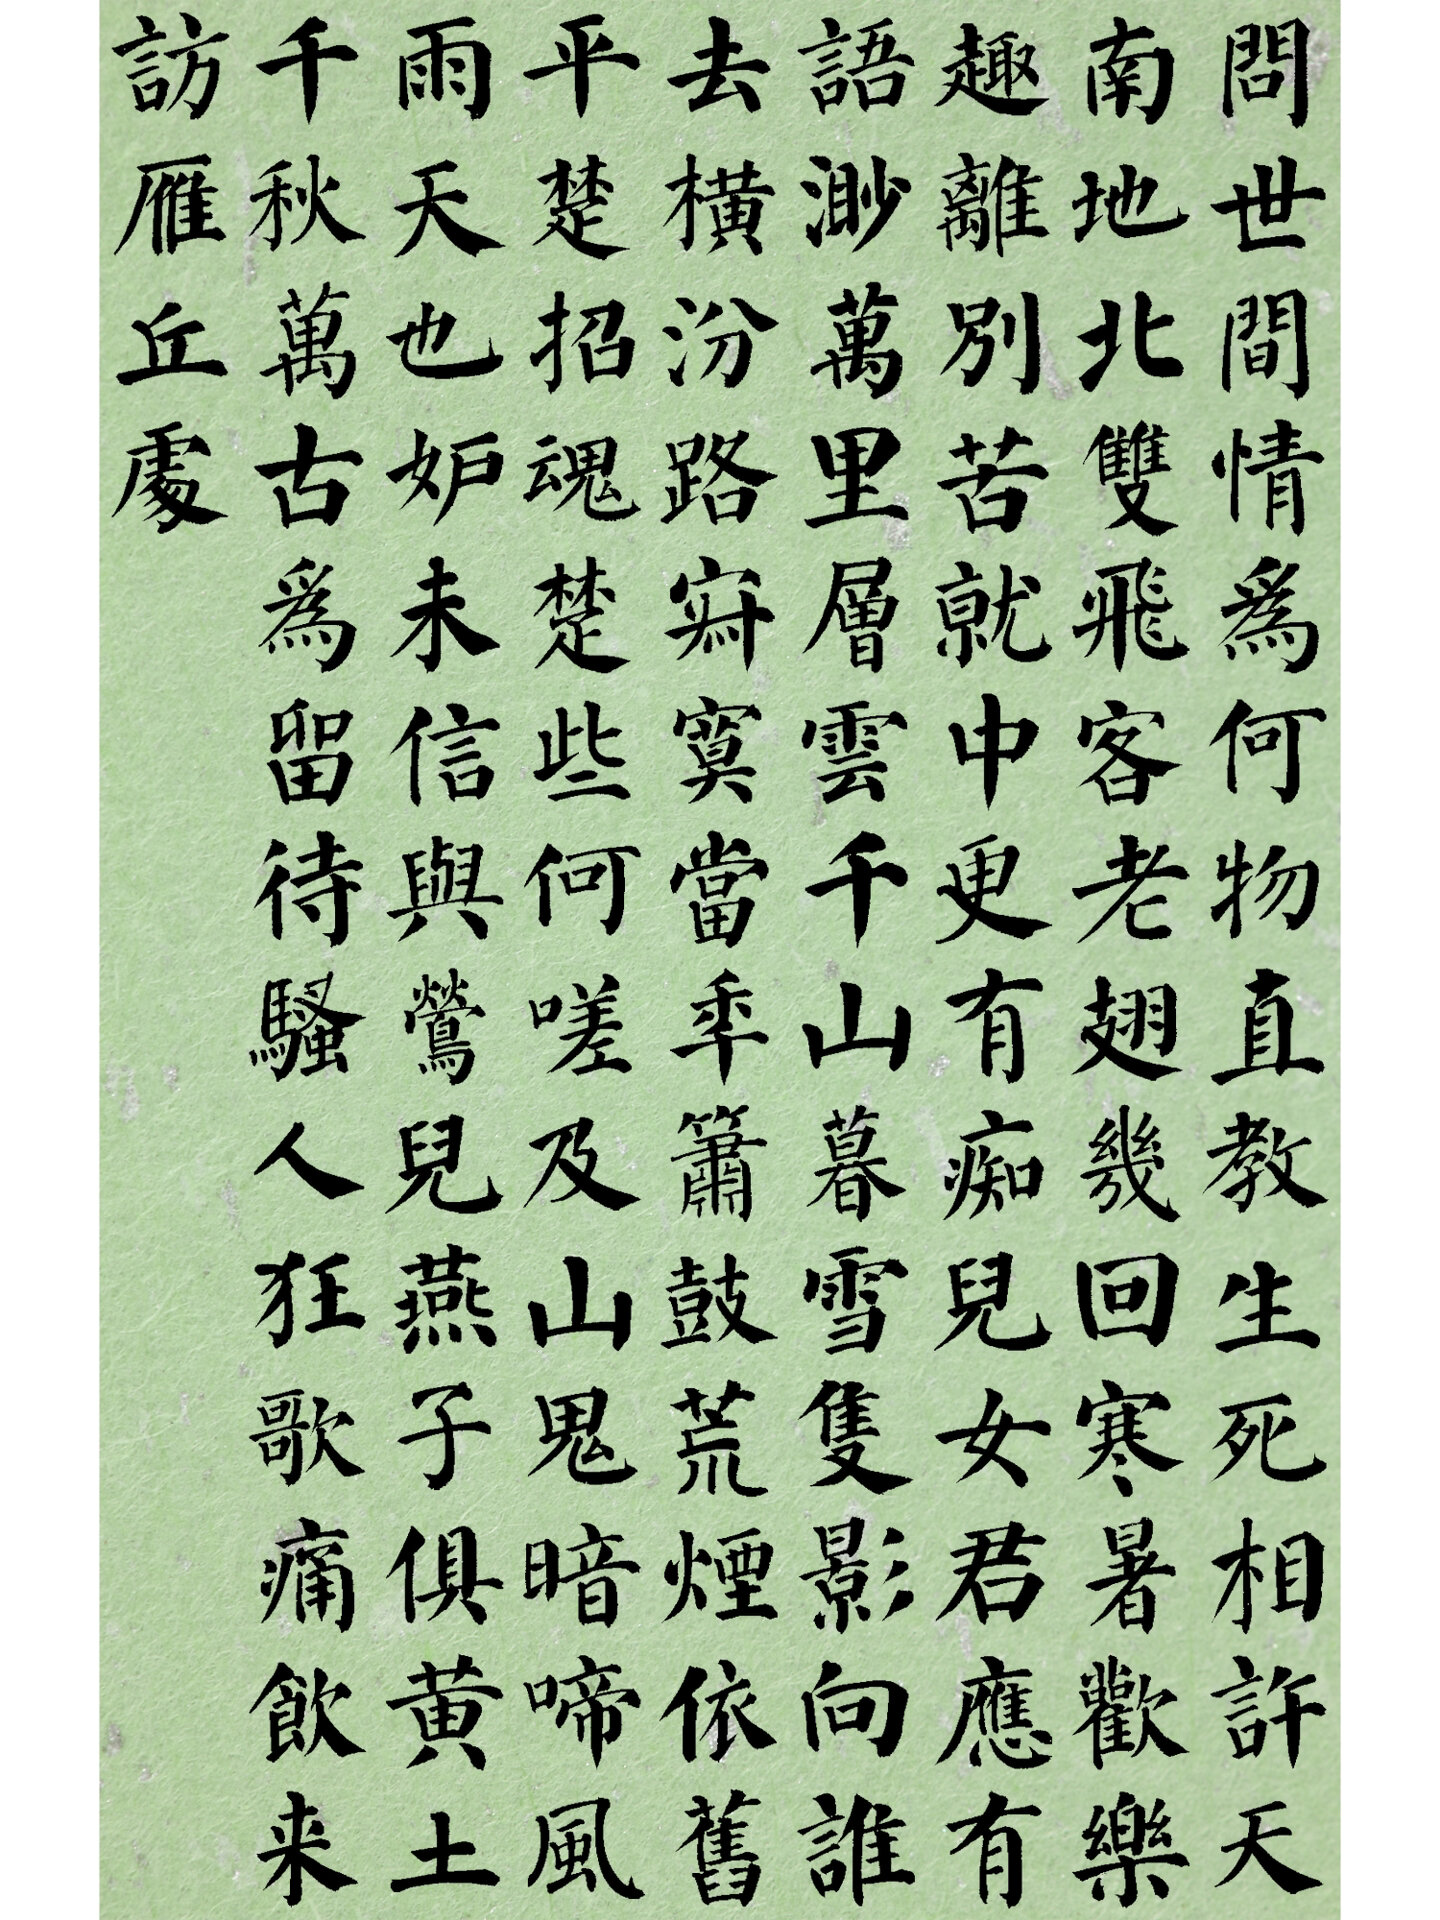 問世間情為何物直教生死相許天
南地北雙飛客老翅幾回寒暑歡樂
趣離別苦就中更有痴兒女君應有
語渺萬里層雲千山暮雪隻影向誰
去橫汾路寂寞當年簫鼓荒煙依舊
平楚招魂楚些何嗟及山鬼暗啼風
雨天也妒未信與鶯兒燕子俱黃土
千秋萬古為留待騷人狂歌痛飲來
訪雁丘處